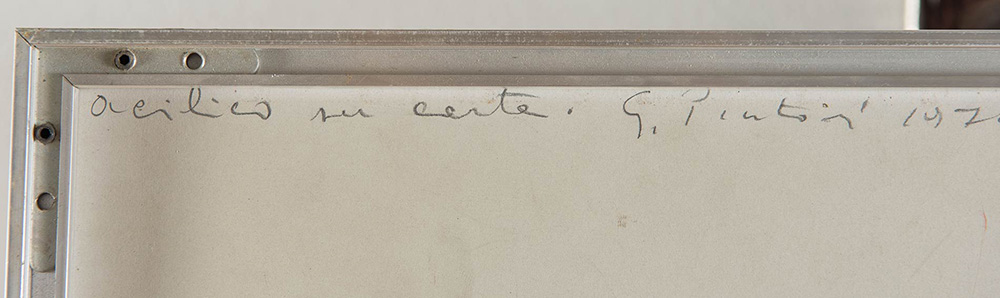 acrilico su carta. G. Pintori 197